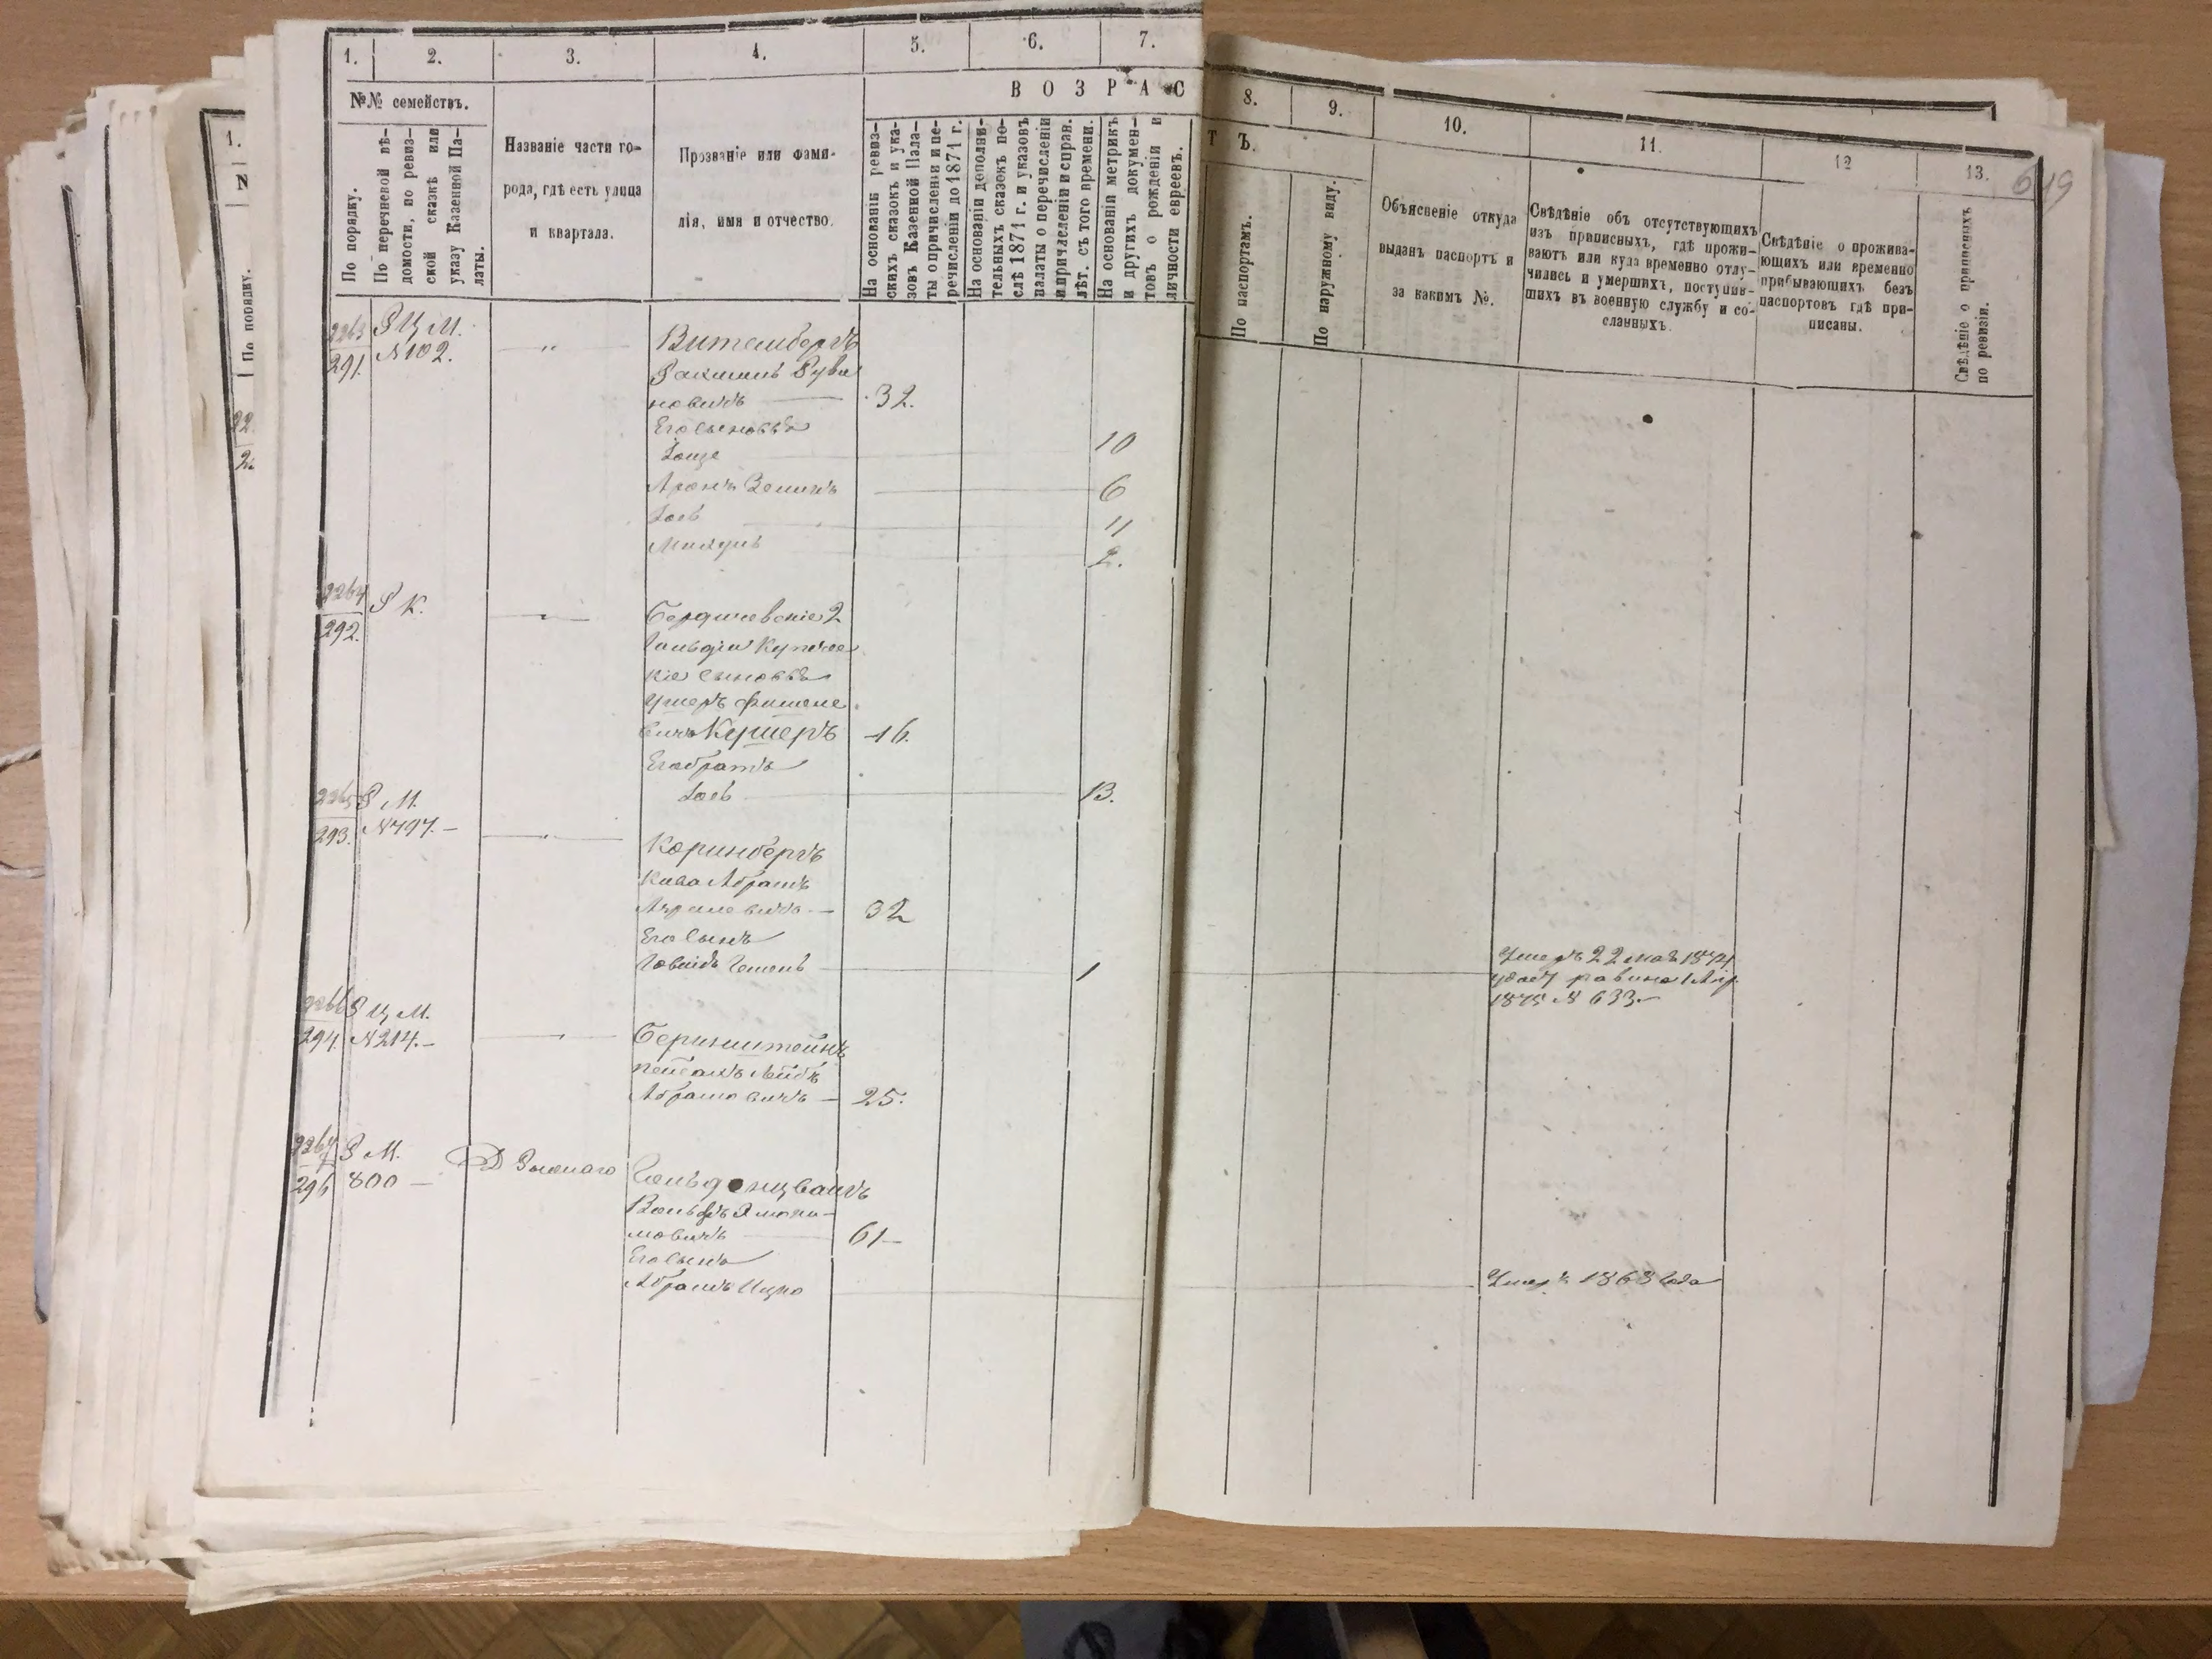 1.
2.
3.
4.
5.
6.
7.
8.
9.
10.
11.
12
13.
649
№№ семействъ.
В О З Р А С
Т Ъ.
По порядку.
По перечневой вѣ-
домости, по ревиз-
ской сказкѣ или
указу Казенной Па-
латы.
Названіе части го-
рода, гдѣ есть улица
и квартала.
Прозваніе или фами-
лія, имя и отчество.
На основаніи ревиз-
скихъ сказокъ и ука-
зовъ Казенной Пала-
ты о причисленіи и пе-
речисленіи до 1871 г.
На основаніи дополни-
тельныхъ сказокъ по-
слѣ 1871 г. и указовъ
палаты о перечисленіи
и причисленіи и справ.
лѣт. съ того времени.
На основаніи метрикъ
и другихъ докумен-
товъ о рожденіи и
личности евреевъ.
По паспортамъ.
По наружному виду.
Объясненіе откуда
выданъ паспортъ и
за какимъ №.
Свѣдѣніе объ отсутствующихъ
изъ приписныхъ, гдѣ прожи-
ваютъ или куда временно отлу-
чились и умершихъ, поступив-
шихъ въ военную службу и со-
сланныхъ.
Свѣдѣніе о прожива-
ющихъ или временно
прибывающихъ безъ
паспортовъ гдѣ при-
писаны.
Свѣдѣніе о приписныхъ
по ревизіи.
1.
N
По порядку.
22
2263
291.
Р Ц М.
N 102.
Витембергъ
новичъ — 32.
Его сыновья
10
Аронъ Зелигъ — 6
Іосъ — 11
2.
2264
292.
Р К.
Бердичевскіе 2
Гильдіи Купече
скіе сыновья
Ушеръ Фишеле
вичъ Кушеръ 16.
Его братъ
Іосъ — 13.
2265
293.
Р М.
N 797.—
Коринбергъ
Кива Абрамъ
Азрилевичъ — 32
Его сынъ
1
Умеръ 22 мая 1874
1875 N 633—
2266
294.
Р Ц М.
N 214.—
Беринштейнъ
Пейсахъ Лейбъ
Абрамовичъ — 25.
2267
295
Р М.
800 —
Гольденцвайгъ
мовичъ — 61—
Его сынъ
Абрамъ Ицко
Умеръ 1863 года